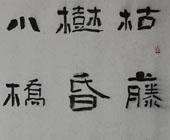 枯藤
樹昏
小橋